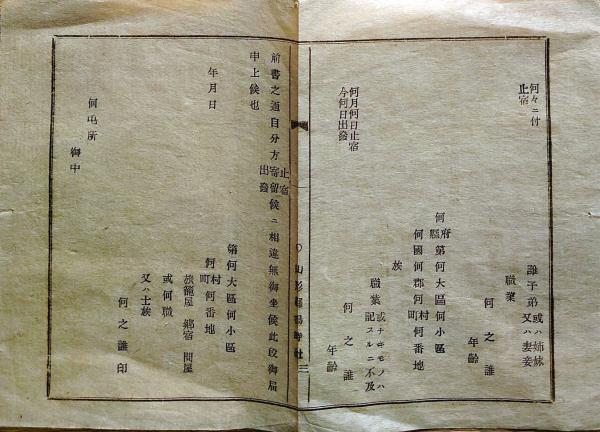 何々ニ付
止宿
誰子弟或ハ姉妹
又ハ妻妾
職業
何之誰
年齡
何月何日止宿
今何日出發
何府縣第何大區何小區
何國何郡何村町何番地
族
職業或ハナキモノハ
記スルニ不及
何之誰
年齡
山形縣
三
前書之通自分方止宿寄留出發候ニ相違無御坐候此段御屆
申上候也
年月日
第何大區何小區
何村町何番地
旅籠屋 鄕宿 問屋
或何職
又ハ士族
何之誰印
何屯所
御中